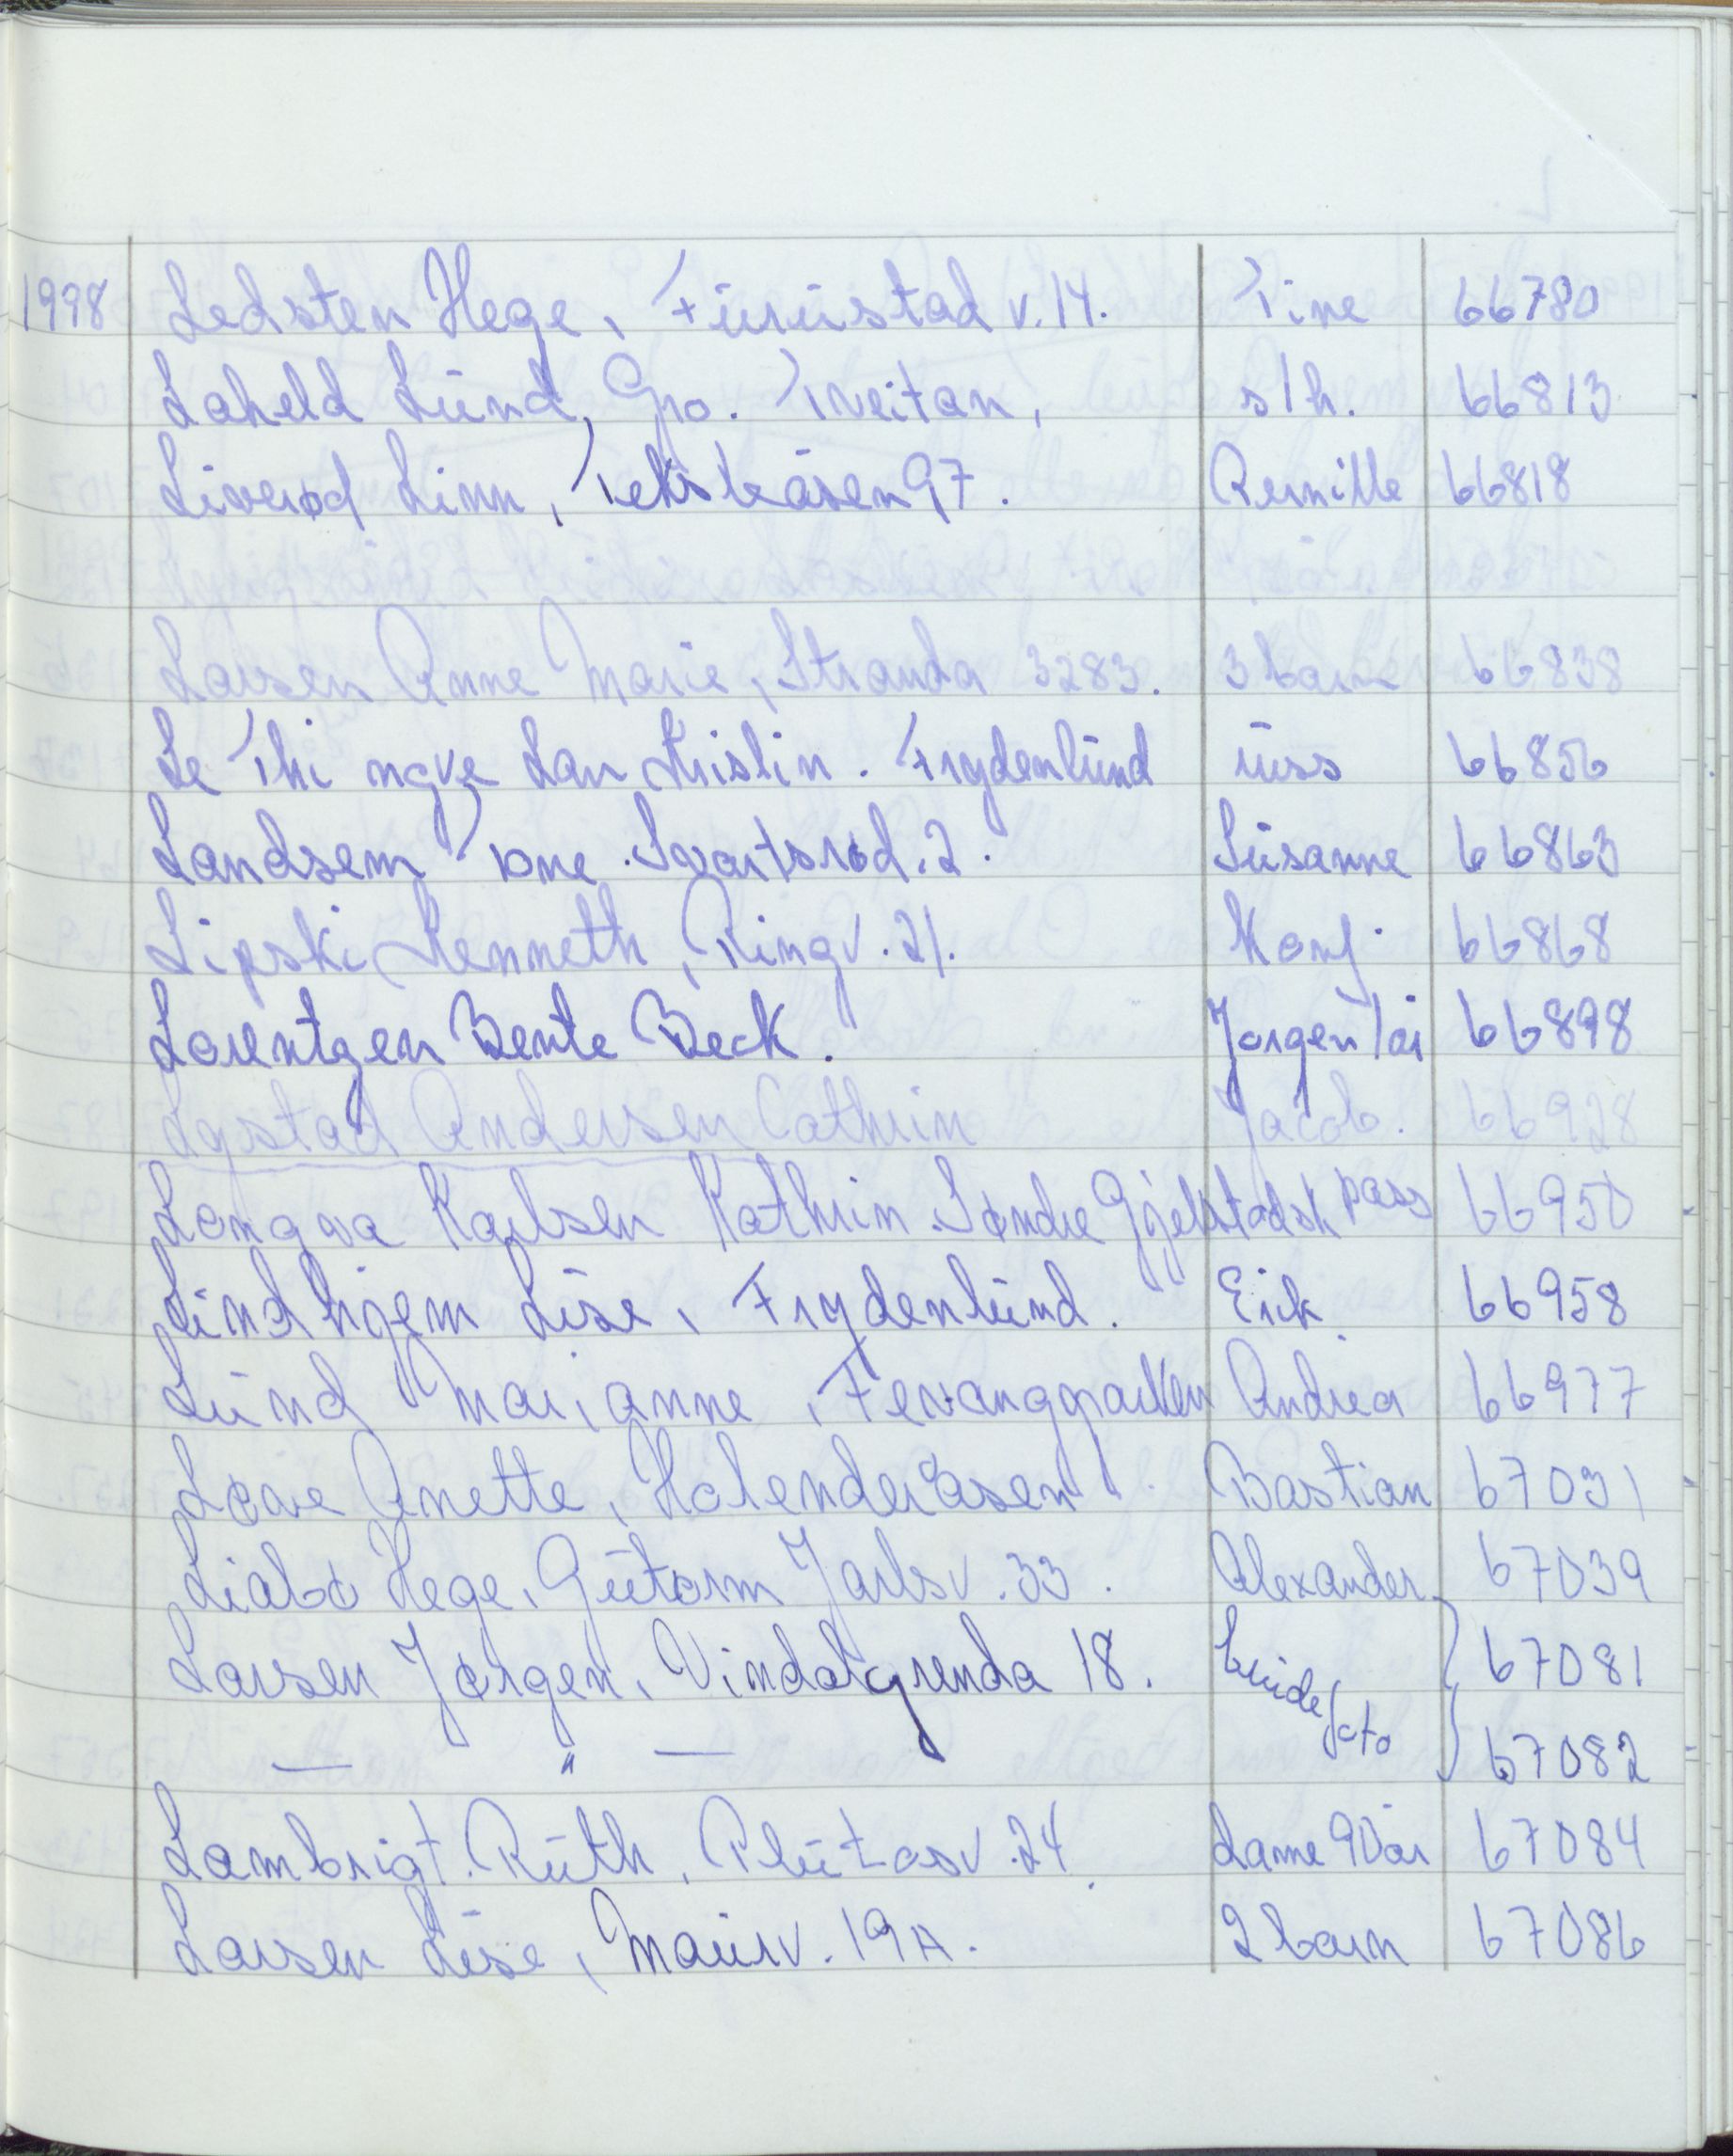 1998 Ledsten Hege, Furustad v. 14. Tine 66780
Laheld Lund, Gro. Tveitan, s/h. 66813
Liverød Linn, Teksleåsen 97. Pernille 66818
Larsen Anne Marie, Stranda 3283. 3 barn 66838
Le Thi ngve Lan Kristin. Frydenlund russ 66856
Landsem Tone. Svartsrød. 2. Susanne 66863
Lipski Kenneth, Ringv. 21. Konf. 66868
Lorentzen Bente Beck. Jørgen 1 år 66898
Lystad Andersen Cathrin Jacob. 66928
Longva Karlsen Kathrin. Søndre Gjelstadsk pass 66950
Lindhjem Lise, Frydenlund. Eirk 66958
Lund Marianne, Fevangparken Andrea 66977
Løve Anette, Holenderåsen Bastian 67031
Liabø Hege, Gutorm Jarlsv. 33. Alexander 67039
Larsen Jørgen, Vindalgrenda 18. bride 67081
— " — foto 67082
Lambrigt. Ruth, Plutosv. 24. Dame 90 år 67084
Larsen Lise, Maurv. 19A. 2 barn 67086